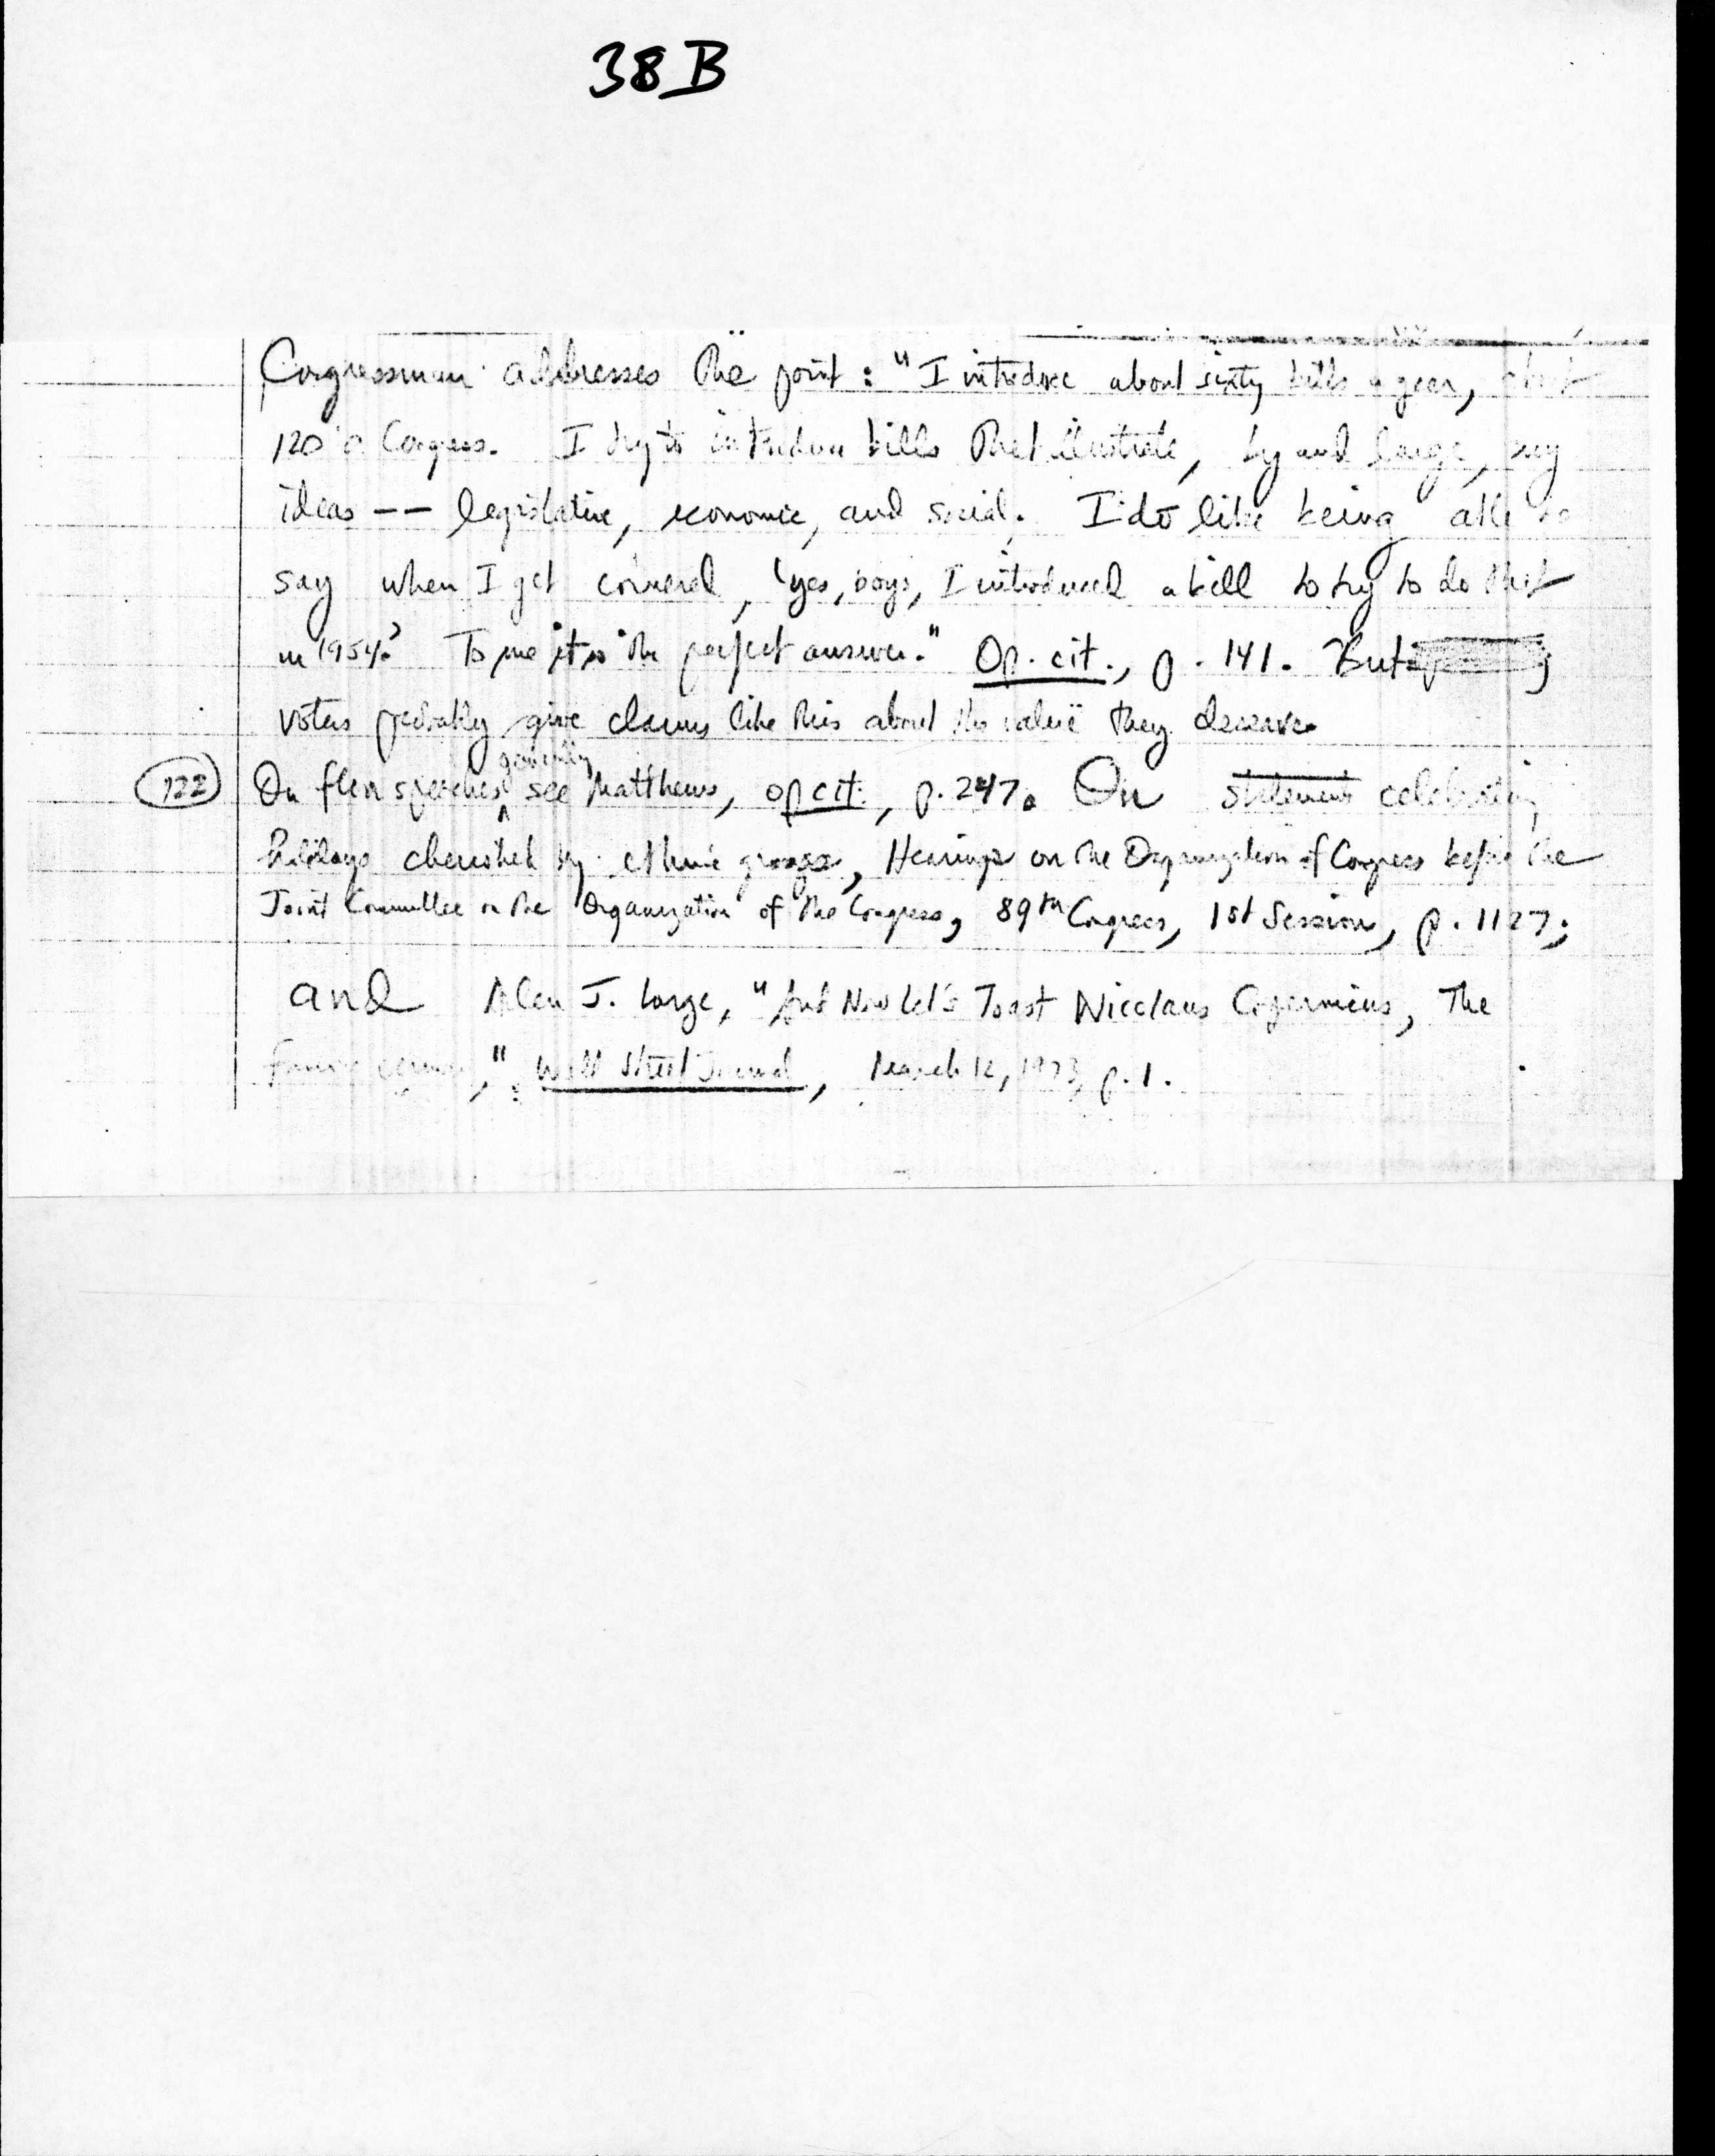 38B
Congressman addresses the point : "I introduce about sixty bills a year, about
120 a Congress. I try to introduce bills that illustrate, by and large, my
ideas -- legislative, economic, and social. I do like being able to
say when I get cornered, 'yes, boys, I introduced a bill to try to do that
in 1954.' To me it is the perfect answer." Op. cit., p. 141. But
voters probably give claims like this about the value they deserve.
generally
122 On floor speeches see Matthews, op cit., p. 247. On statements celebrating
holidays cherished by ethnic groups, Hearings on the Organization of Congress before the
Joint Committee on the Organization of the Congress, 89th Congress, 1st Session, p. 1127;
and Alan J. Large, "And Now Let's Toast Nicolaus Copernicus, The
," Wall Street Journal, March 12, 1973, p. 1.